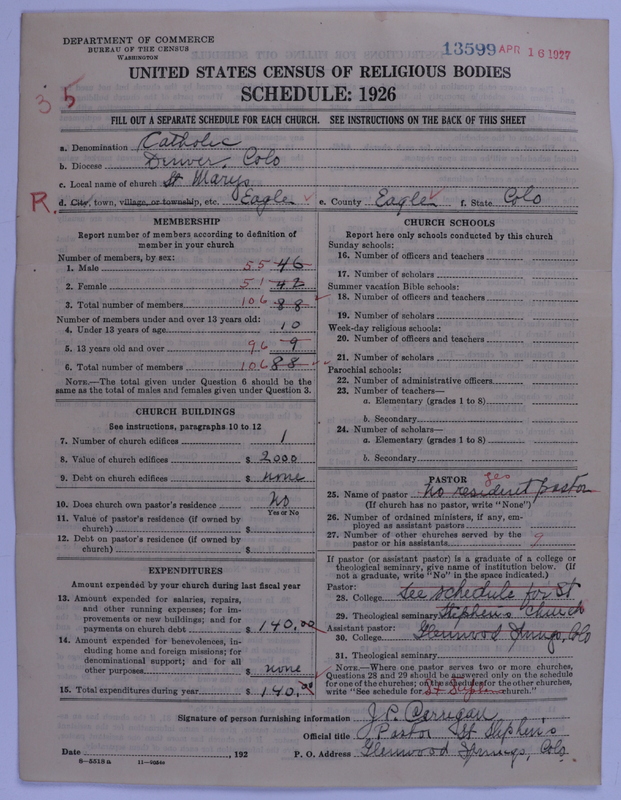 DEPARTMENT OF COMMERCE
BUREAU OF THE CENSUS
WASHINGTON
13599 APR 16 1927
UNITED STATES CENSUS OF RELIGIOUS BODIES
SCHEDULE: 1926
35
FILL OUT A SEPARATE SCHEDULE FOR EACH CHURCH. SEE INSTRUCTIONS ON THE BACK OF THIS SHEET
a. Denomination Catholic
b. Diocese Denver, Colo
c. Local name of church St Marys
R. d. City, town, village, or township, etc. Eagle e. County Eagle f. State Colo
MEMBERSHIP
Report number of members according to definition of
member in your church
Number of members, by sex:
1. Male 55 46
2. Female 51 42
3. Total number of members 106 88
Number of members under and over 13 years old:
4. Under 13 years of age 10
5. 13 years old and over 96 9
6. Total number of members 106 88
NOTE.—The total given under Question 6 should be the
same as the total of males and females given under Question 3.
CHURCH BUILDINGS
See instructions, paragraphs 10 to 12
7. Number of church edifices 1
8. Value of church edifices $ 2000
9. Debt on church edifices $ none
10. Does church own pastor's residence No
Yes or No
11. Value of pastor's residence (if owned by
church) $
12. Debt on pastor's residence (if owned by
church) $
EXPENDITURES
Amount expended by your church during last fiscal year
13. Amount expended for salaries, repairs,
and other running expenses; for im-
provements or new buildings; and for
payments on church debt $ 140.00
14. Amount expended for benevolences, in-
cluding home and foreign missions; for
denominational support; and for all
other purposes $ none
15. Total expenditures during year $ 140.00
CHURCH SCHOOLS
Report here only schools conducted by this church
Sunday schools:
16. Number of officers and teachers
17. Number of scholars
Summer vacation Bible schools:
18. Number of officers and teachers
19. Number of scholars
Week-day religious schools:
20. Number of officers and teachers
21. Number of scholars
Parochial schools:
22. Number of administrative officers
23. Number of teachers—
a. Elementary (grades 1 to 8)
b. Secondary
24. Number of scholars—
a. Elementary (grades 1 to 8)
b. Secondary
PASTOR yes
25. Name of pastor No resident pastor
(If church has no pastor, write "None")
26. Number of ordained ministers, if any, em-
ployed as assistant pastors
27. Number of other churches served by the
pastor or his assistants 9
If pastor (or assistant pastor) is a graduate of a college or
theological seminary, give name of institution below. (If
not a graduate, write "No" in the space indicated.)
Pastor:
28. College See schedule for St
29. Theological seminary Stephen's Church
Assistant pastor:
30. College Glenwood Springs, Colo
31. Theological seminary
NOTE.—Where one pastor serves two or more churches,
Questions 28 and 29 should be answered only on the schedule
for one of the churches; on the schedules for the other churches,
write "See schedule for St Stephen church."
Signature of person furnishing information J. P. Carrigan
Official title Pastor St Stephen's
Date , 192 P. O. Address Glenwood Springs, Colo.
8—5518a 11—9054